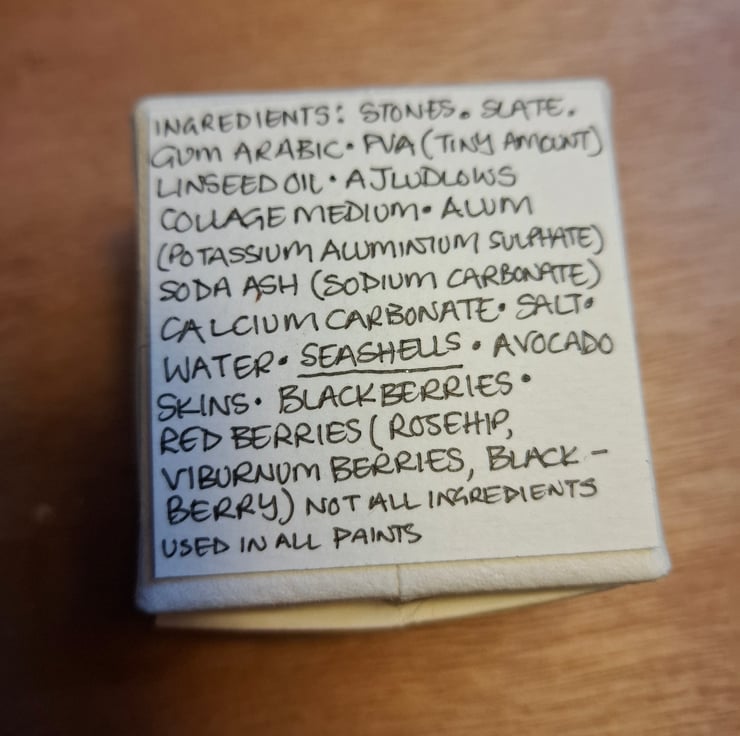 INGREDIENTS: STONES. SLATE.
GUM ARABIC • PVA (TINY AMOUNT)
LINSEED OIL • A J LUDLOWS
COLLAGE MEDIUM • ALUM
(POTASSIUM ALUMINIUM SULPHATE)
SODA ASH (SODIUM CARBONATE)
CALCIUM CARBONATE • SALT •
WATER • SEASHELLS • AVOCADO
SKINS • BLACKBERRIES •
RED BERRIES (ROSEHIP,
VIBURNUM BERRIES, BLACK-
BERRY) NOT ALL INGREDIENTS
USED IN ALL PAINTS